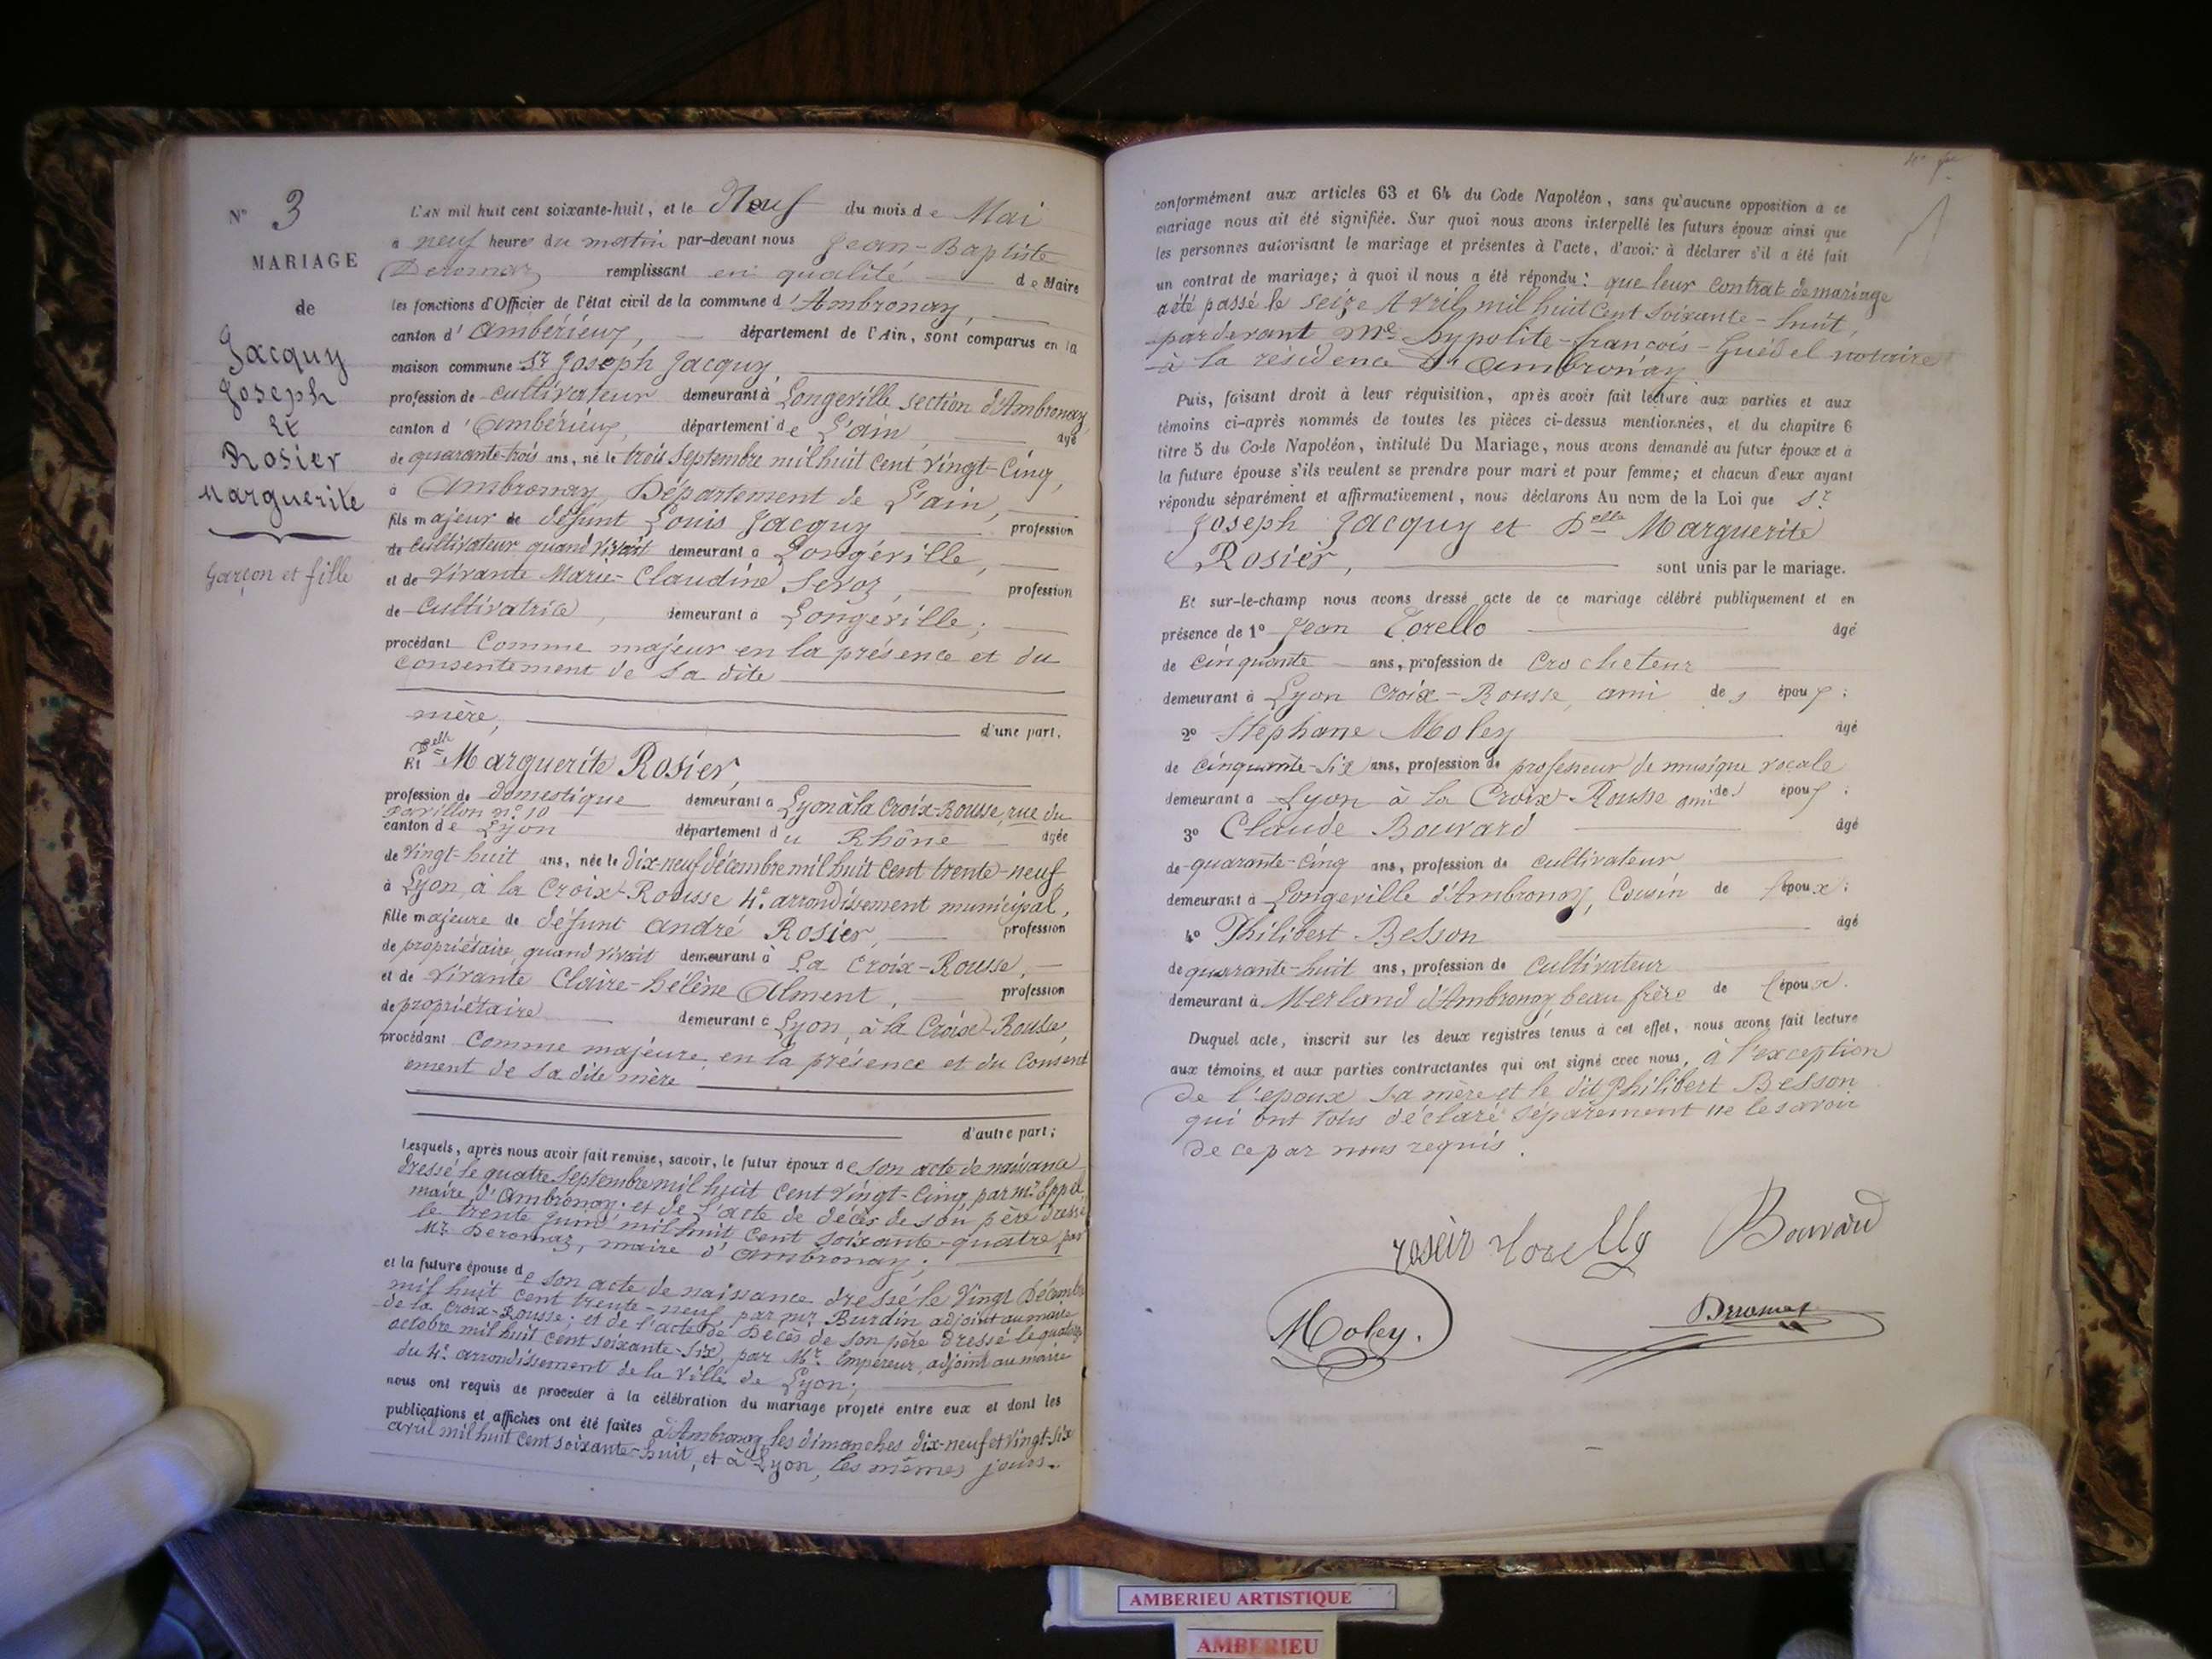 N° 3
MARIAGE
de
Jacquy
Joseph
Et
Rosier
Marguerite
Garçon et fille
L'AN mil huit cent soixante-huit, et le Neuf du mois de Mai
a neuf heures du matin par-devant nous Jean-Baptiste
Deromaz remplissant en qualité de Maire
les fonctions d'Officier de l'état civil de la commune d'Ambronay,
canton d'Ambérieux, département de l'Ain, sont comparus en la
maison commune Sr Joseph Jacquy
profession de cultivateur demeurant à Longeville section d'Ambronay,
canton d'Ambérieux, département de L'ain âgé
de quarante-trois ans, né le trois Septembre mil huit Cent Vingt-Cinq,
à Ambronay Département de L'ain,
fils majeur de défunt Louis Jacquy profession
de Cultivateur quand vivait demeurant à Longéville,
et de Vivante Marie-Claudine Servoz, profession
de Cultivatrice, demeurant à Longéville;
procédant Comme majeur en la présence et du
Consentement de Sa dite
mère, d'une part.
Et Delle Marguerite Rosier,
profession de domestique demeurant a Lyon à la Croix-Rousse, rue du
Pavillon n° 10
canton de Lyon département du Rhône âgée
de Vingt-huit ans, née le Dix-neuf décembre mil huit Cent trente-neuf
à Lyon, à la Croix-Rousse 4e arrondissement municipal,
fille majeure de défunt André Rosier, profession
de propriétaire quand vivait demeurant à La Croix-Rousse,
et de Vivante Claire-hélène Alment, profession
de propriétaire demeurant à Lyon, à la Croix-Rousse,
procédant Comme majeure, en la présence et du Consent
ement de Sa dite mère
d'autre part;
Lesquels, après nous avoir fait remise, savoir, le futur époux de Son acte de naissance
dressé le quatre Septembre mil huit Cent Vingt-Cinq, par Mr
maire d'Ambronay; et de l'acte de décès de son père dressé
le trente Juin mil huit Cent Soixante-quatre par
Mr Deromaz, maire d'Ambronay;
et la future épouse de Son acte de naissance dressé le Vingt Décembre
mil huit Cent trente-neuf par Mr Burdin adjoint au maire
de la Croix-Rousse; et de l'acte de Décès de son père dressé le
octobre mil huit cent soixante-six, par Mr Empereur, adjoint au maire
du 4e arrondissement de la Ville de Lyon;
nous ont requis de procéder à la célébration du mariage projeté entre eux et dont les
publications et affiches ont été faites à Ambronay les dimanches dix-neuf et Vingt-Six
avril mil huit Cent soixante-huit, et à Lyon, les mêmes jours.
conformément aux articles 63 et 64 du Code Napoléon, sans qu'aucune opposition a ce
mariage nous ait été signifiée. Sur quoi nous avons interpellé les futurs époux ainsi que
les personnes autorisant le mariage et présentes à l'acte, d'avoir à déclarer s'il a été fait
un contrat de mariage; à quoi il nous a été répondu: que leur Contrat de mariage
a été passé le Seize Avril mil huit Cent Soixante-huit,
pardevant Me hypolite-françois-Guédel notaire
à la résidence d'Ambronay.
Puis, faisant droit à leur réquisition, après avoir fait lecture aux parties et aux
témoins ci-après nommés de toutes les pièces ci-dessus mentionnées, et du chapitre 6
titre 5 du Code Napoléon, intitulé Du Mariage, nous avons demandé au futur époux et à
la future épouse s'ils veulent se prendre pour mari et pour femme; et chacun d'eux ayant
répondu séparément et affirmativement, nous déclarons Au nom de la Loi que Sr
Joseph Jacquy et Delle Marguerite
Rosier, sont unis par le mariage.
Et sur-le-champ nous avons dressé acte de ce mariage célébré publiquement et en
présence de 1° Jean Torello âgé
de cinquante ans, profession de Crocheteur
demeurant à Lyon Croix-Rousse, ami des époux;
2° Stephane Moley âgé
de cinquante-Six ans, profession de professeur de musique vocale
demeurant à Lyon à la Croix-Rousse ami des époux;
3° Claude Bouvard âgé
de quarante-Cinq ans, profession de cultivateur
demeurant à Longeville d'Ambronay, Cousin de l'époux;
4° Philibert Besson âgé
de quarante-huit ans, profession de Cultivateur
demeurant à Merland d'Ambronay, beau frère de l'époux.
Duquel acte, inscrit sur les deux registres tenus à cet effet, nous avons fait lecture
aux témoins et aux parties contractantes qui ont signé avec nous, à l'exception
de l'époux Sa mère et le dit Philibert Besson
qui ont tous déclaré Séparément ne le savoir
de ce par nous requis.
rosier Bouvard
Moley. Deromaz
AMBERIEU ARTISTIQUE
AMBERIEU